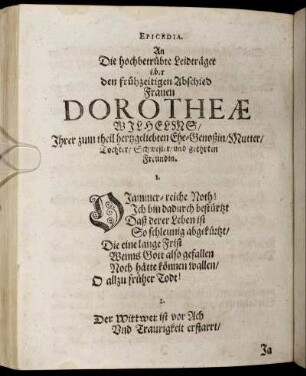 EPICEDIA.
An
Die hochbetrübte Leidträger
über
den frühzeitigen Abschied
Frauen
DOROTHEÆ
WILHELMS/
Ihrer zum theil hertzgeliebten Ehe-Genoßin/Mutter/
Tochter/ Schwester/ und geehrten
Freundin.
1.
O Jammer-reiche Noth!
Ich bin dadurch bestürtzt
Daß derer Leben ist
So schleunig abgekürtzt/
Die eine lange Frist
Wenns Gott also gefallen
Noch hätte können wallen/
O allzu früher Todt!
2.
Der Wittwer ist vor Ach
Vnd Traurigkeit erstarrt/
Ja